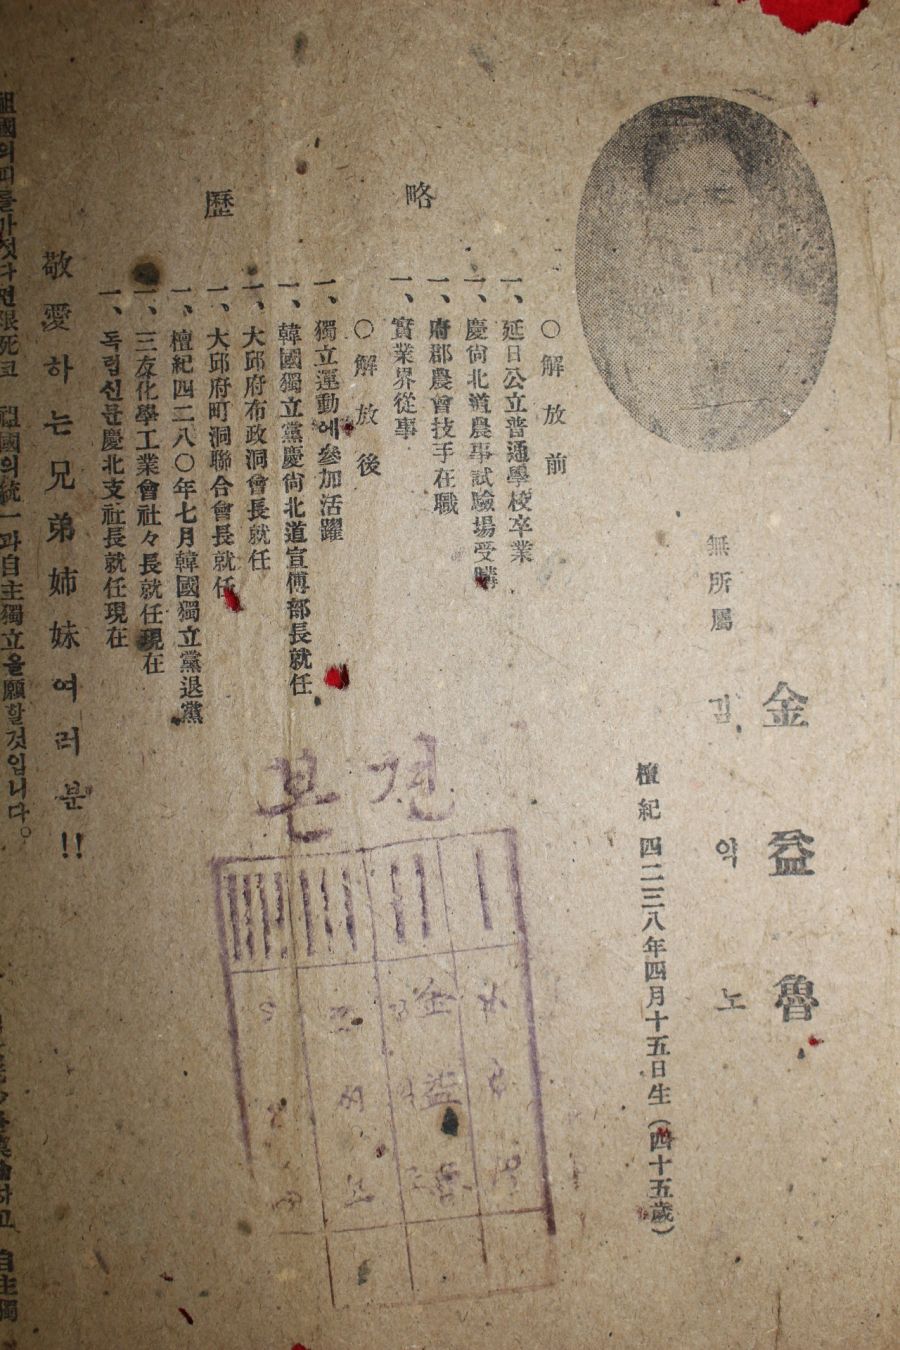 金益魯
無所屬 김익노
檀紀四二三八年四月十五日生（四十五歲）
略歷
○解放前
一、延日公立普通學校卒業
一、慶尙北道農事試驗場受講
一、府郡農會技手在職
一、實業界從事
○解放後
一、獨立運動에參加活躍
一、韓國獨立黨慶尙北道宣傳部長就任
一、大邱府布政洞會長就任
一、大邱府町洞聯合會長就任
一、檀紀四二八〇年七月韓國獨立黨退黨
一、三友化學工業會社々長就任現在
一、독립신문慶北支社長就任現在
견본
金益魯
敬愛하는兄弟姉妹여러분!!
祖國의피를가젓다면限死코 祖國의統一과自主獨立을願할것입니다。
自主獨